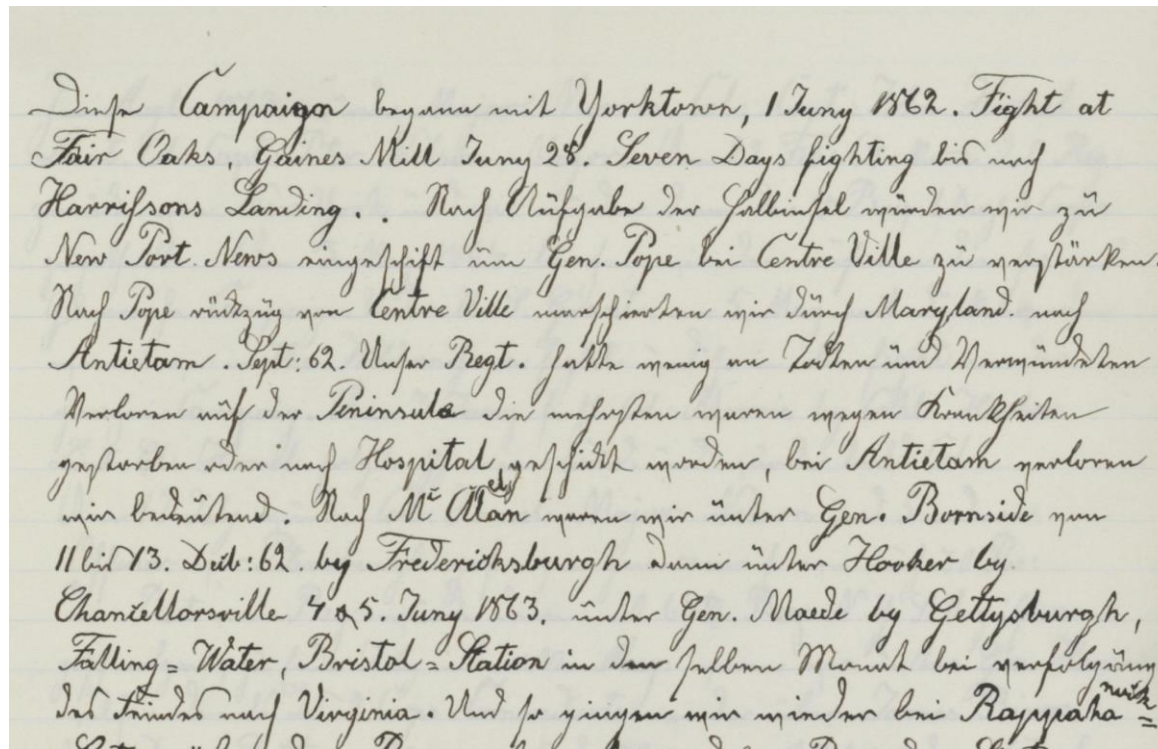 Diese Campaign begann mit Yorktown, 1 Juny 1862. Fight at
Fair Oaks, Gaines Mill Juny 28. Seven Days fighting bis nach
Harrissons Landing. . Nach Aufgabe der Halbinsel wurden wir zu
New Port. News eingeschift um Gen. Pope bei Centre Ville zu verstärken.
Nach Pope rückzug von Centre Ville marschierten wir durch Maryland. nach
Antietam. Sept: 62. Unser Regt. hatte wenig an Todten und Verwundeten
Verloren auf der Peninsula die mehrsten waren wegen Krankheiten
gestorben oder nach Hospital geschickt worden, bei Antietam verloren
wir bedeutend. Nach Mc Clellan waren wir unter Gen. Bornside von
11 bis 13. : 62. by Fredericksburgh dann unter Hooker by.
Chancellorsville 4 & 5. Juny 1863. unter Gen. Maede by Gettysburgh,
Falling = Water, Bristol = Station in den selben Monat bei verfolgung
des Feindes nach Virginia. Und so gingen wir wieder bei Rappahanock =